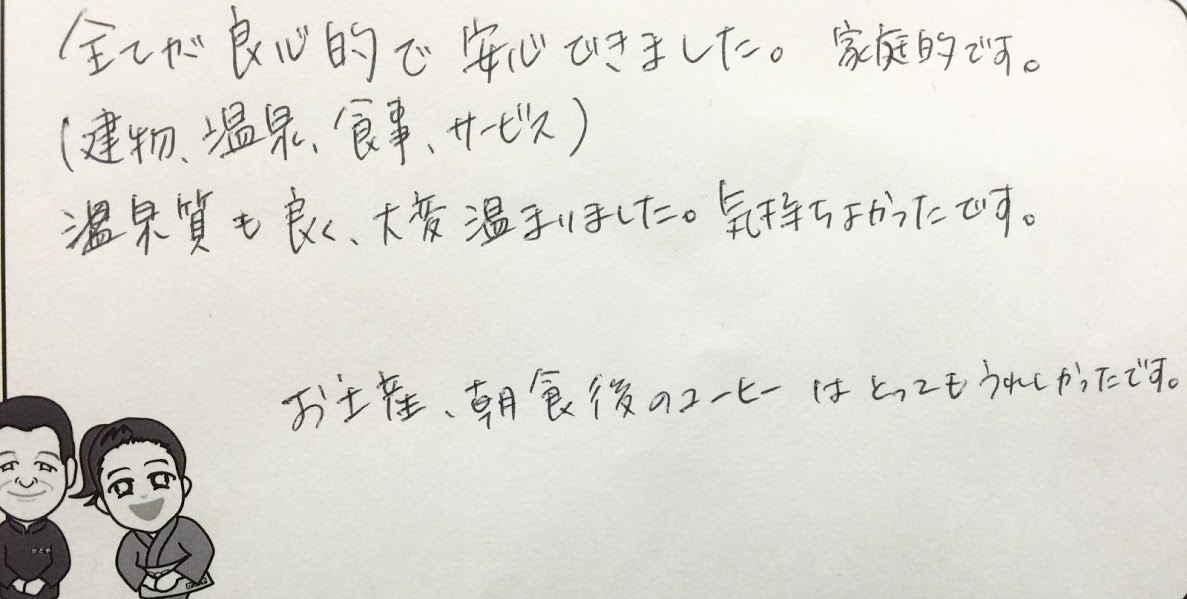 全てが良心的で安心できました。家庭的です。
(建物、温泉、食事、サービス)
温泉質も良く、大変温まりました。気持ちよかったです。
お土産、朝食後のコーヒーはとってもうれしかったです。
かどや